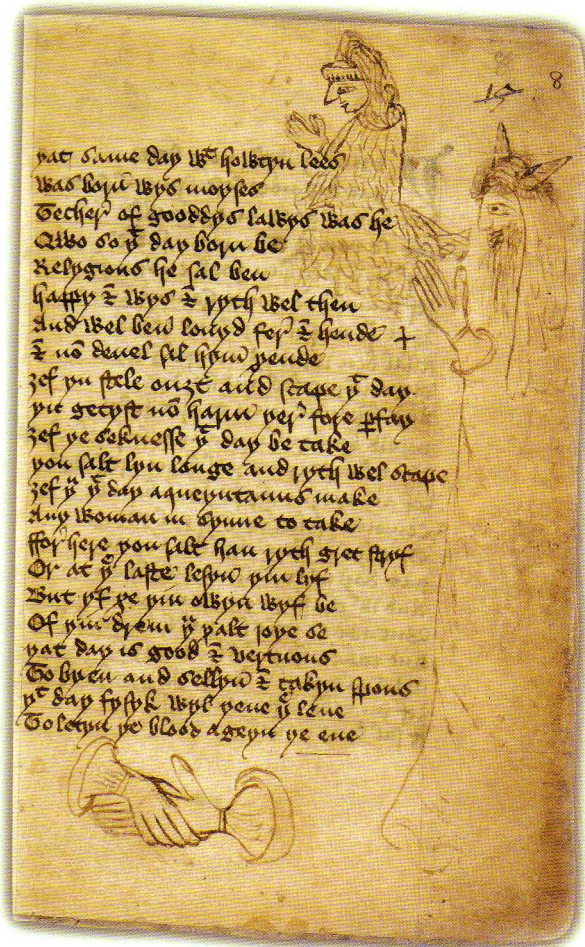 8
yat same day wt howtyn lees
was born wys moyses
Techer of gooddys lawys was he
Qwo so yt day born be
Relygious he sal ben
happy & wys & ryth wel then
And wel ben louyd fer & hende
& no deuel sal hym schende
zef yu stele outt and scape yt day
yu getyst no harm yer fore pfay
zef ye seknesse yt day be take
you salt lyn longe and ryth wel scape
zef yu yt day aqueyntauns make
Any woman in synne to take
ffor here you salt han ryth gret stryf
Or at ye laste lesyn yin lyf
But yf ye yin owyn wyf be
Of yin drem yu yalt ioye se
yat day is good & vertuous
To byen and sellyn & takyn spous
yt day fysyk wyl yeue ye leue
To letyn ye blood ageyn ye eue